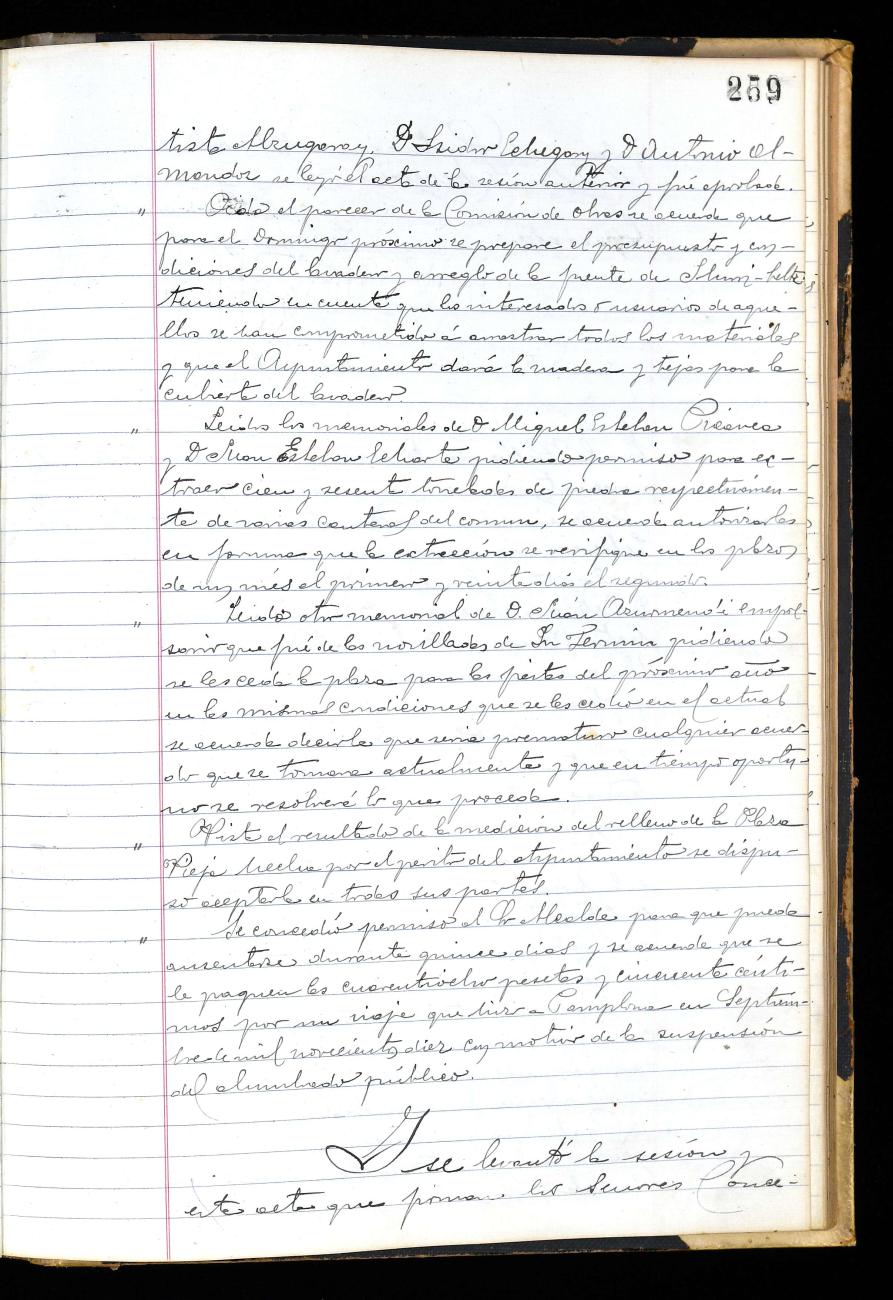 269
tista Alzugaray, D Isidro Echegaray y D Antonio Al-
mandoz se leyó el acta de la sesión anterior y fué aprobada.
" Oido el parecer de la Comisión de obras se acuerda que
para el Domingo próximo se prepare el presupuesto y con-
diciones del lavadero y arreglo de la fuente de
teniendo en cuenta que los interesados ó usuarios de aque-
llos se han comprometido á arrastrar todos los materiales
y que el Ayuntamiento dará la madera y tejas para la
cubierta del lavadero.
" Leidos los memoriales de D Miguel Esteban
y D Juan Esteban Echarte pidiendo permiso para ex-
traer cien y sesenta toneladas de piedra respectivamen-
te de varias canteras del comun, se acuerda autorizarles
en forma que la extracción se verifique en los plazos
de un més el primero y veinte dias el segundo.
" Leido otro memorial de D. Juan Azurmendi empre-
sario que fué de las novilladas de Sn Fermin pidiendo
se les ceda la plaza para las fiestas del próximo año
en las mismas condiciones que se les cedió en el actual
se acuerda decirle que seria prematuro cualquier acuer-
do que se tomara actualmente y que en tiempo oportu-
no se resolverá lo que proceda.
" Vista el resultado de la medición del relleno de la Plaza
Vieja hecha por el perito del Ayuntamiento se dispu-
so aceptarla en todas sus partes.
" Se concedió permiso al Sr Alcalde para que pueda
ausentarse durante quince dias y se acuerda que se
le paguen las cuarentiocho pesetas y cincuenta cénti-
mos por un viaje que hizo a Pamplona en Septiem-
bre de mil novecientos diez con motivo de la suspensión
del alumbrado público.
Y se levantó la sesión y
esta acta que firman los Señores Conce-